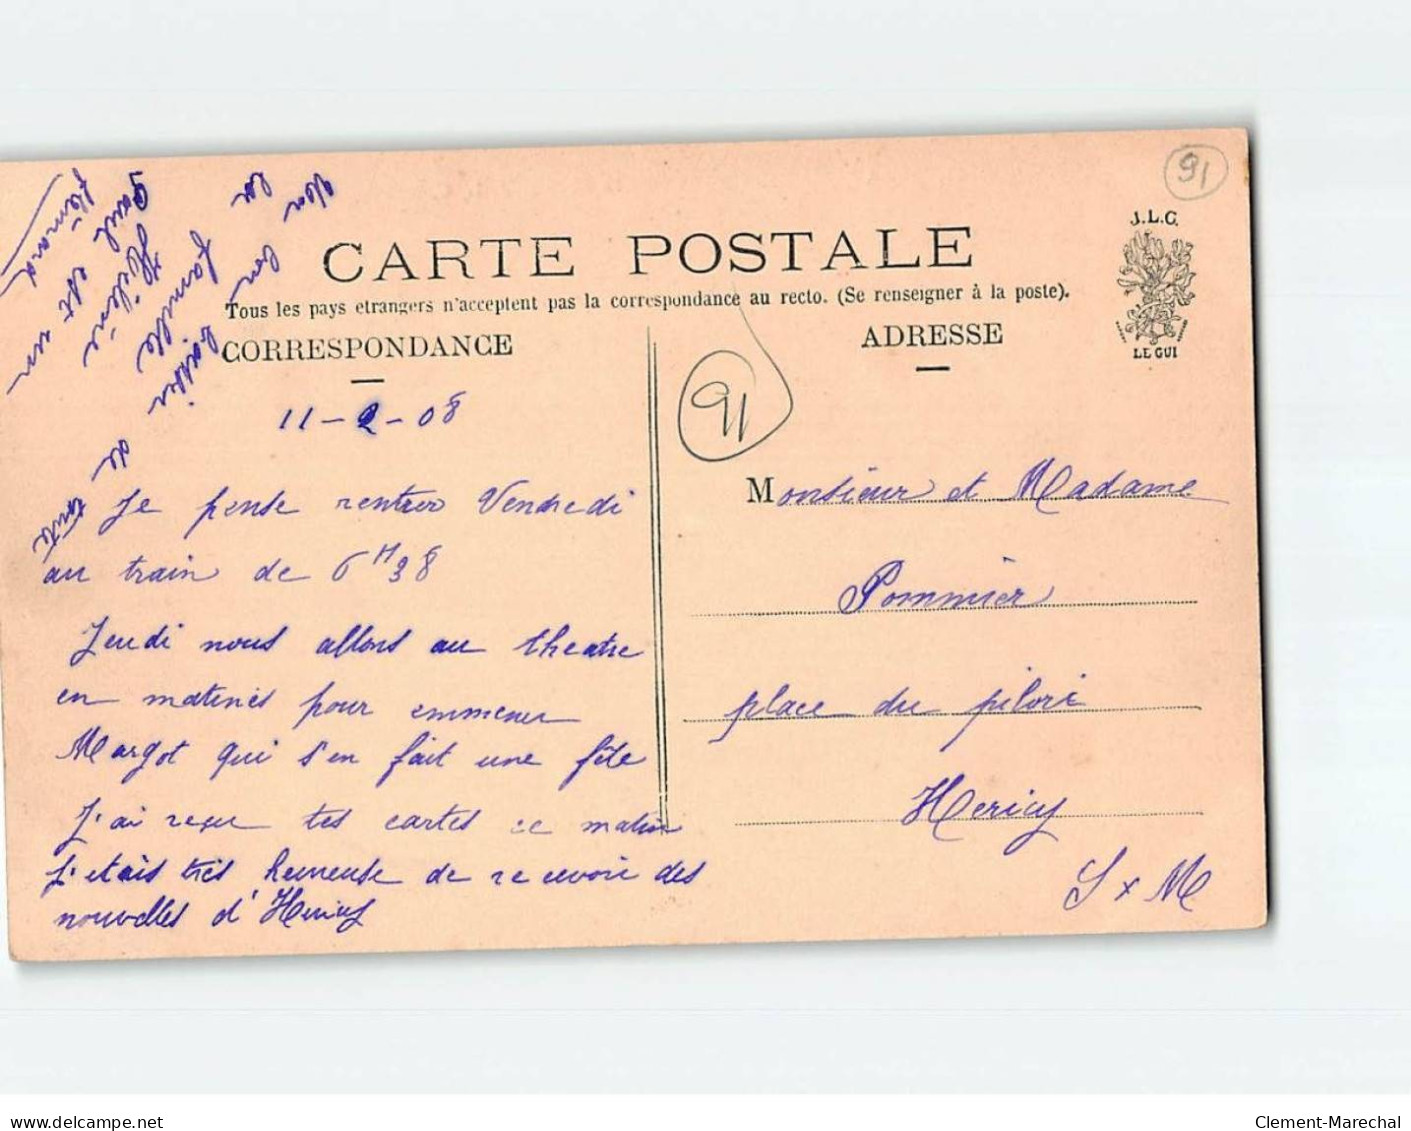 91
J.L.C.
CARTE POSTALE
Tous les pays etrangers n'acceptent pas la correspondance au recto. (Se renseigner à la poste).
CORRESPONDANCE
ADRESSE
LE GUI
91
11-2-08
Je pense rentrer Vendredi
au train de 6H38
Jeudi nous allons au theatre
en matinés pour emmener
Margot qui s'en fait une fête
J'ai reçu tes cartes ce matin
j'etais très heureuse de recevoir des
nouvelles d'Hericy
Un bon baiser de toute
la famille
Hélène
Paul est un
flémard
Monsieur et Madame
Pommier
place du pilori
Hericy
S x M
delcampe.net
Clement-Marechal